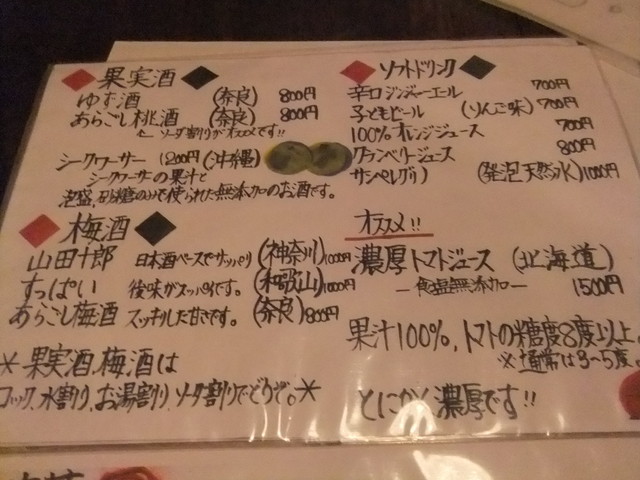 果実酒
ゆず酒 (奈良) 800円
あらごし桃酒 (奈良) 800円
← ソーダ割りがオススメです!!
シークヮーサー 1200円 (沖縄)
シークヮーサーの果汁と
泡盛、砂糖のみで使られた無添加のお酒です。
梅酒
山田十郎 日本酒ベースでサッパリ (神奈川) 1000円
すっぱい 後味がスッパイです。 (和歌山) 1000円
あらごし梅酒 スッキリした甘さです。 (奈良) 800円
* 果実酒、梅酒は
ロック、水割り、お湯割り、ソーダ割りでどうぞ。*
ソフトドリンク
辛口ジンジャーエール 700円
子どもビール (りんご味) 700円
100% オレンジジュース 700円
クランベリージュース 800円
サンペレグリノ (発泡天然水) 1000円
オススメ!!
濃厚トマトジュース (北海道)
―食塩無添加― 1500円
果汁100%、トマトの糖度8度以上。
※通常は3~5度。
とにかく濃厚です!!